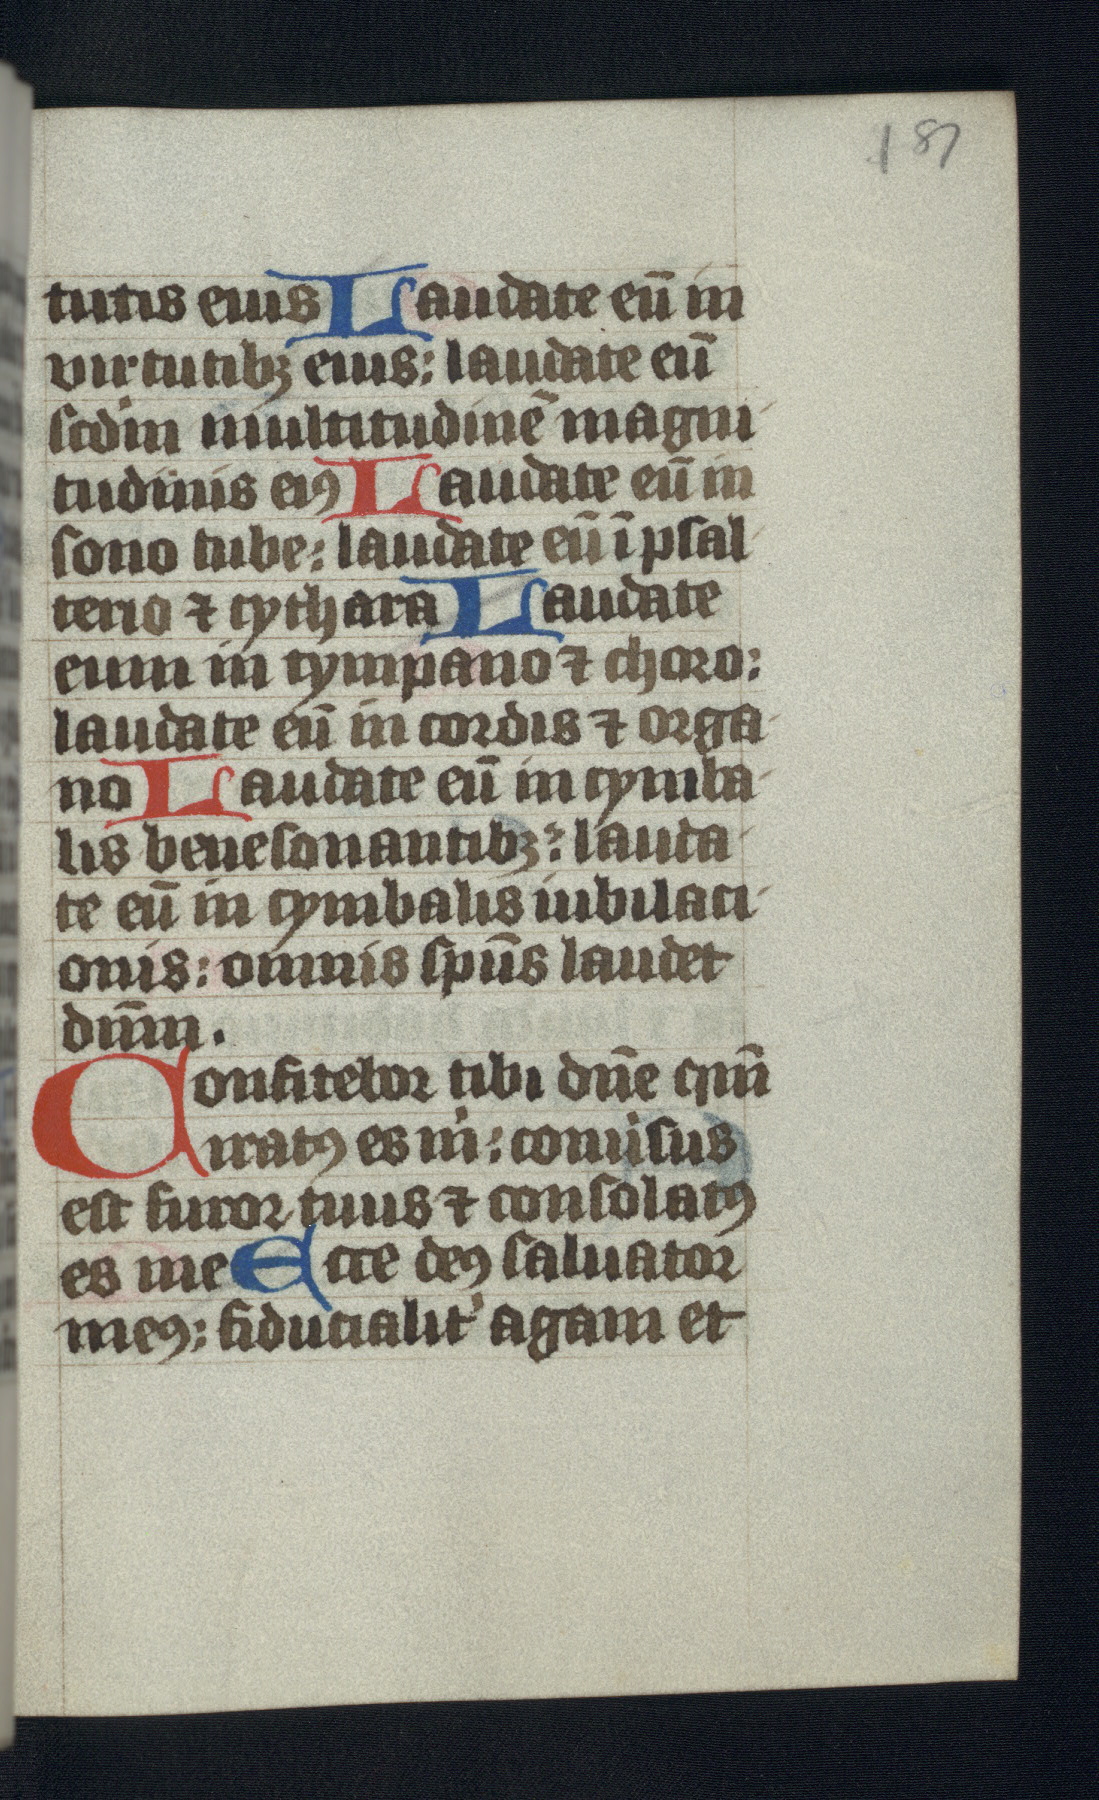 187
tutis eius Laudate eū in
virtutibꝫ eius: laudate eū
scd'm multitudinē magni-
tudinis eiꝰ Laudate eū in
sono tube: laudate eū ī psal-
terio ⁊ cythara Laudate
eum in tympano ⁊ choro:
laudate eū in cordis ⁊ orga-
no Laudate eū in cymba-
lis benesonantibꝫ: lauda-
te eū in cymbalis iubilaci-
onis: omnis sp̄us laudet
dn̄m.
Confitebor tibi dn̄e qm̄
iratꝰ es m': conuersus
est furor tuus ⁊ consolatꝰ
es me Ecce deꝰ saluator
meꝰ: fiducialit' agam et